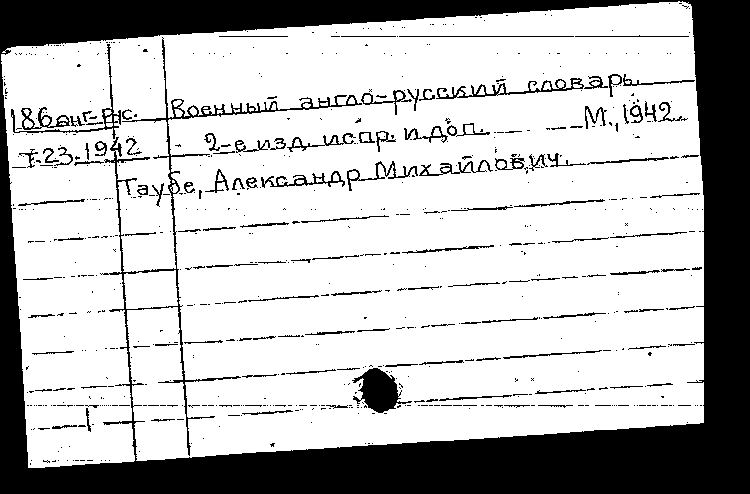 186 анг-рус. Военный англо-русский словарь.
т.23.1942 - 2-е изд. испр. и доп. М., 1942.
Таубе, Александр Михайлович.